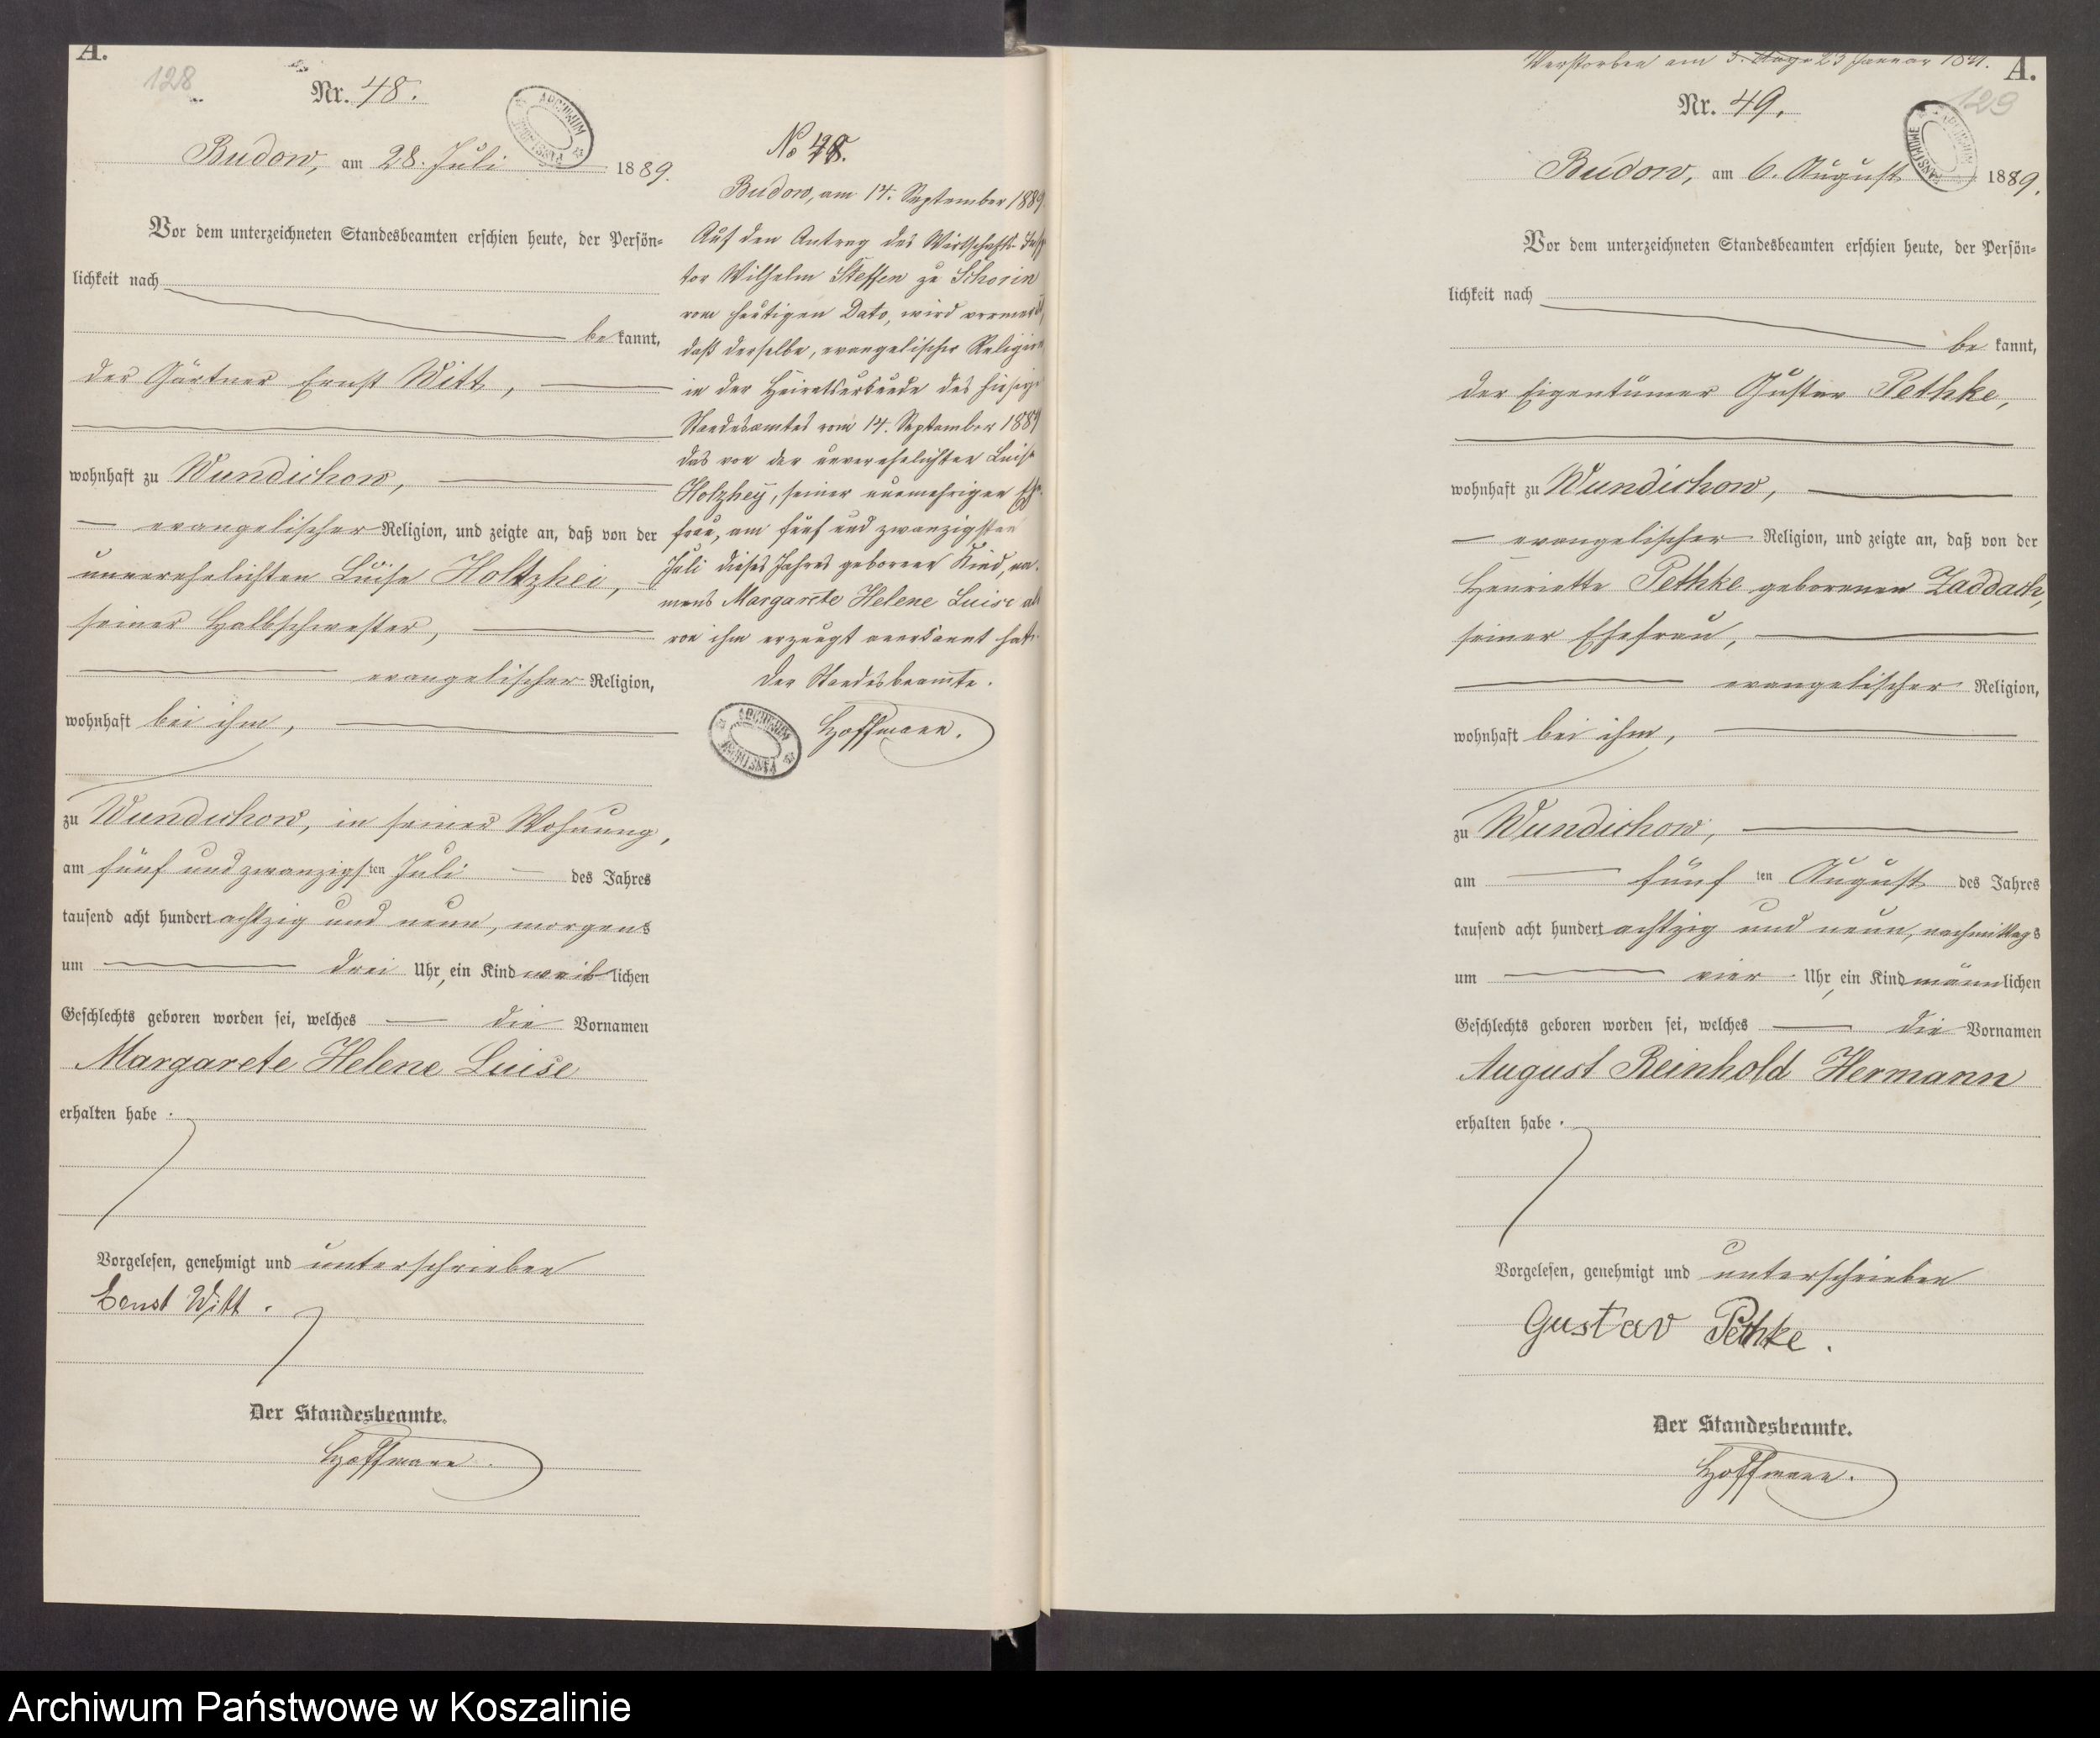 A.
128
Nr. 48.
Budow, am 28. Juli 1889.
Vor dem unterzeichneten Standesbeamten erschien heute, der Persön=
lichkeit nach
bekannt,
der Gärtner Ernst Witt,
wohnhaft zu Wundichow,
evangelischer Religion, und zeigte an, daß von der
unverehelichten Luise Holtzhei,
seiner Halbschwester,
evangelischer Religion,
wohnhaft bei ihm,
zu Wundichow, in seiner Wohnung,
am fünf und zwanzigsten Juli des Jahres
tausend acht hundert achtzig und neun, morgens
um drei Uhr, ein Kind weiblichen
Geschlechts geboren worden sei, welches die Vornamen
Margarete Helene Luise
erhalten habe.
Vorgelesen, genehmigt und unterschrieben
Ernst Witt.
Der Standesbeamte.
Hoffmann.
No 48.
Budow, am 14. September 1889
Auf den Antrag des Wirtschafts-Insp
tor Wilhelm Steffen zu Schorin
vom heutigen Dato, wird vermerkt,
daß derselbe, evangelischer Religion
in der Heiratsurkunde des hiesige
Standesamtes vom 14. September 1889
das von der unverehelichten Luise
Holzhey, seiner nunmehrigen Ehe-
frau, am fünf und zwanzigsten
Juli dieses Jahres geborene Kind, na-
mens Margarete Helene Luise als
von ihm erzeugt anerkannt hat.
Der Standesbeamte.
Hoffmann.
ARCHIWUM
Verstorben am 23 Januar 1891.
A.
129
Nr. 49.
Budow, am 6. August 1889.
Vor dem unterzeichneten Standesbeamten erschien heute, der Persön=
lichkeit nach
bekannt,
der Eigentümer Gustav Pethke,
wohnhaft zu Wundichow,
evangelischer Religion, und zeigte an, daß von der
Henriette Pethke geborenen Zaddach,
seiner Ehefrau,
evangelischer Religion,
wohnhaft bei ihm,
zu Wundichow,
am fünften August des Jahres
tausend acht hundert achtzig und neun, nachmittags
um vier Uhr, ein Kind männlichen
Geschlechts geboren worden sei, welches die Vornamen
August Reinhold Hermann
erhalten habe.
Vorgelesen, genehmigt und unterschrieben
Gustav Pethke.
Der Standesbeamte.
Hoffmann.
Archiwum Państwowe w Koszalinie